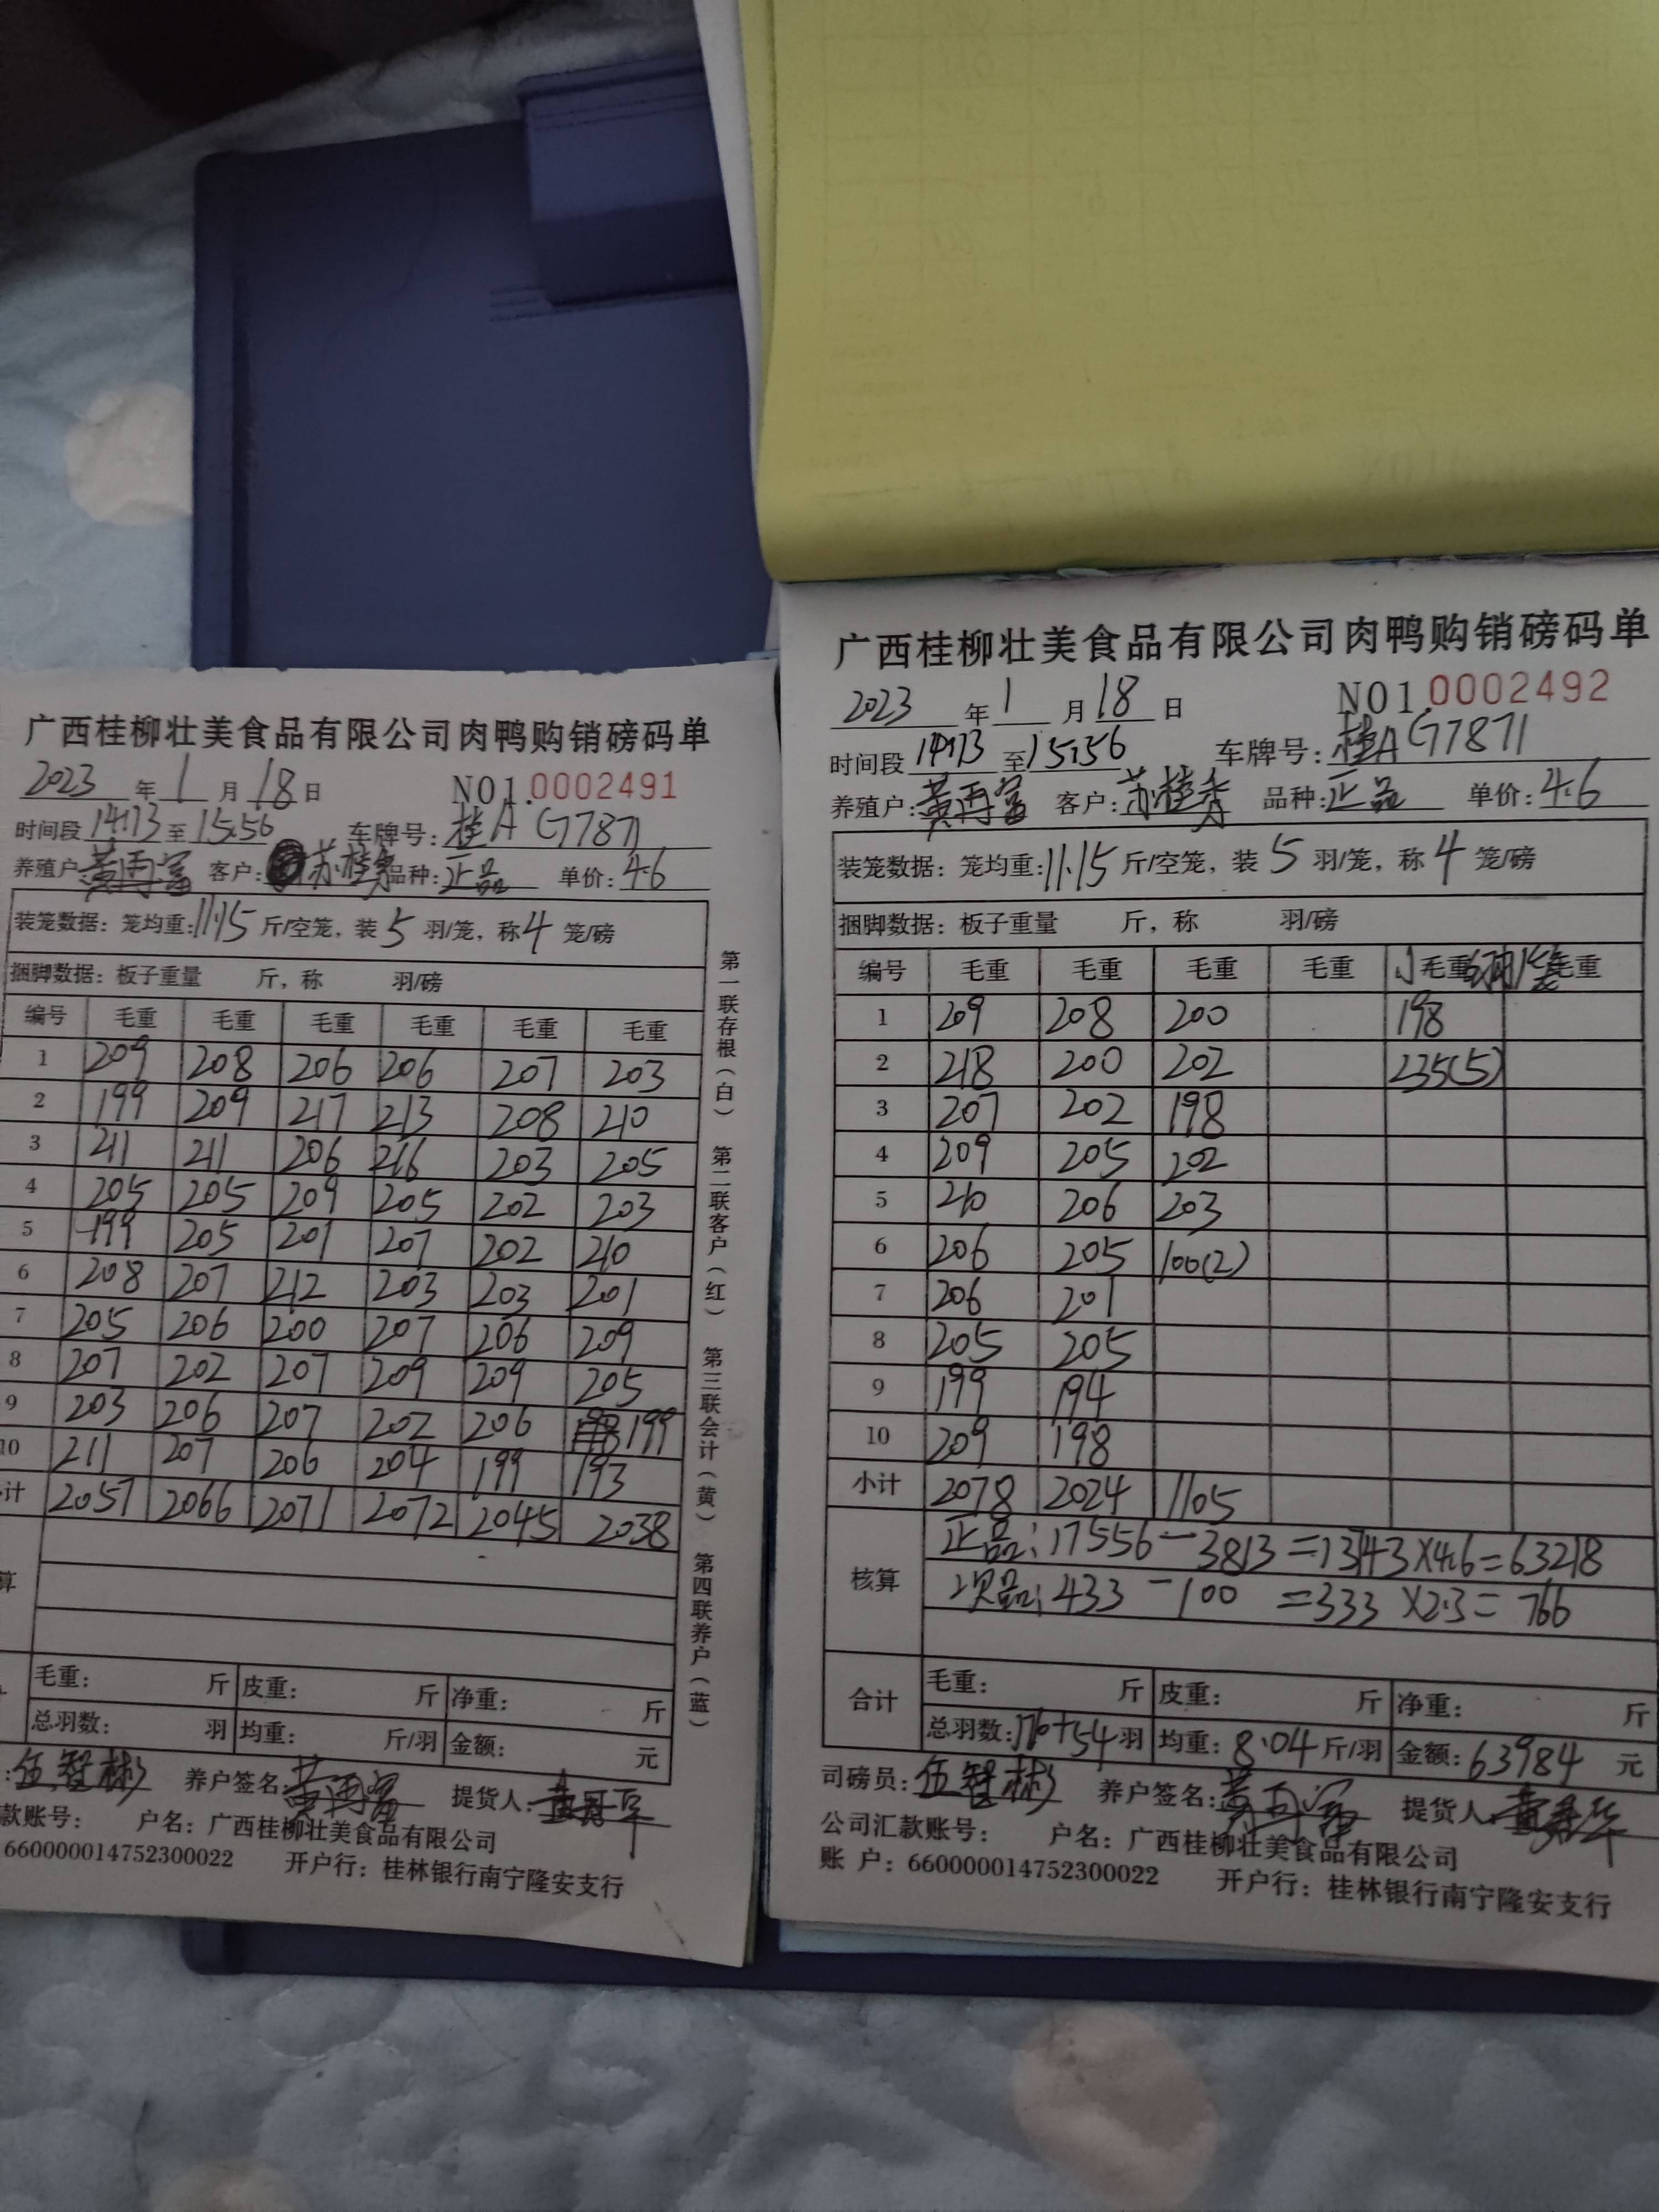 广西桂柳壮美食品有限公司肉鸭购销磅码单
2023 年 1 月 18 日 NO1.0002491
时间段 14:13 至 15:56 车牌号: 桂A G7871
养殖户: 黄再富 客户: 苏桂秀 品种: 正品 单价: 4.6
装笼数据: 笼均重: 11.15 斤/空笼, 装 5 羽/笼, 称 4 笼/磅
捆脚数据: 板子重量 斤, 称 羽/磅
编号 毛重 毛重 毛重 毛重 毛重 毛重
1 209 208 206 206 207 203
2 199 209 217 213 208 210
3 211 211 206 216 203 205
4 205 205 209 205 202 203
5 199 205 201 207 202 210
6 208 207 212 203 203 201
7 205 206 200 207 206 209
8 207 202 207 209 209 205
9 203 206 207 202 206 199
10 211 207 206 204 199 193
计 2057 2066 2071 2072 2045 2038
算
毛重: 斤 皮重: 斤 净重: 斤
总羽数: 羽 均重: 斤/羽 金额: 元
: 伍智彬 养户签名: 黄再富 提货人:
款账号: 户名: 广西桂柳壮美食品有限公司
660000014752300022 开户行: 桂林银行南宁隆安支行
第一联存根(白) 第二联客户(红) 第三联会计(黄) 第四联养户(蓝)
广西桂柳壮美食品有限公司肉鸭购销磅码单
2023 年 1 月 18 日 NO1.0002492
时间段 14:13 至 15:56 车牌号: 桂A G7871
养殖户: 黄再富 客户: 苏桂秀 品种: 正品 单价: 4.6
装笼数据: 笼均重: 11.15 斤/空笼, 装 5 羽/笼, 称 4 笼/磅
捆脚数据: 板子重量 斤, 称 羽/磅
编号 毛重 毛重 毛重 毛重 毛重 毛重
1 209 208 200 198
2 218 200 202 235(5)
3 207 202 198
4 209 205 202
5 210 206 203
6 206 205 100(2)
7 206 201
8 205 205
9 199 194
10 209 198
小计 2078 2024 1105
核算
正品: 17556-3813=13743×4.6=63218
次品: 433-100=333×2.3=766
合计
毛重: 斤 皮重: 斤 净重: 斤
总羽数: 羽 均重: 8.04 斤/羽 金额: 63984 元
司磅员: 伍智彬 养户签名: 黄再富 提货人:
公司汇款账号: 户名: 广西桂柳壮美食品有限公司
账 户: 660000014752300022 开户行: 桂林银行南宁隆安支行